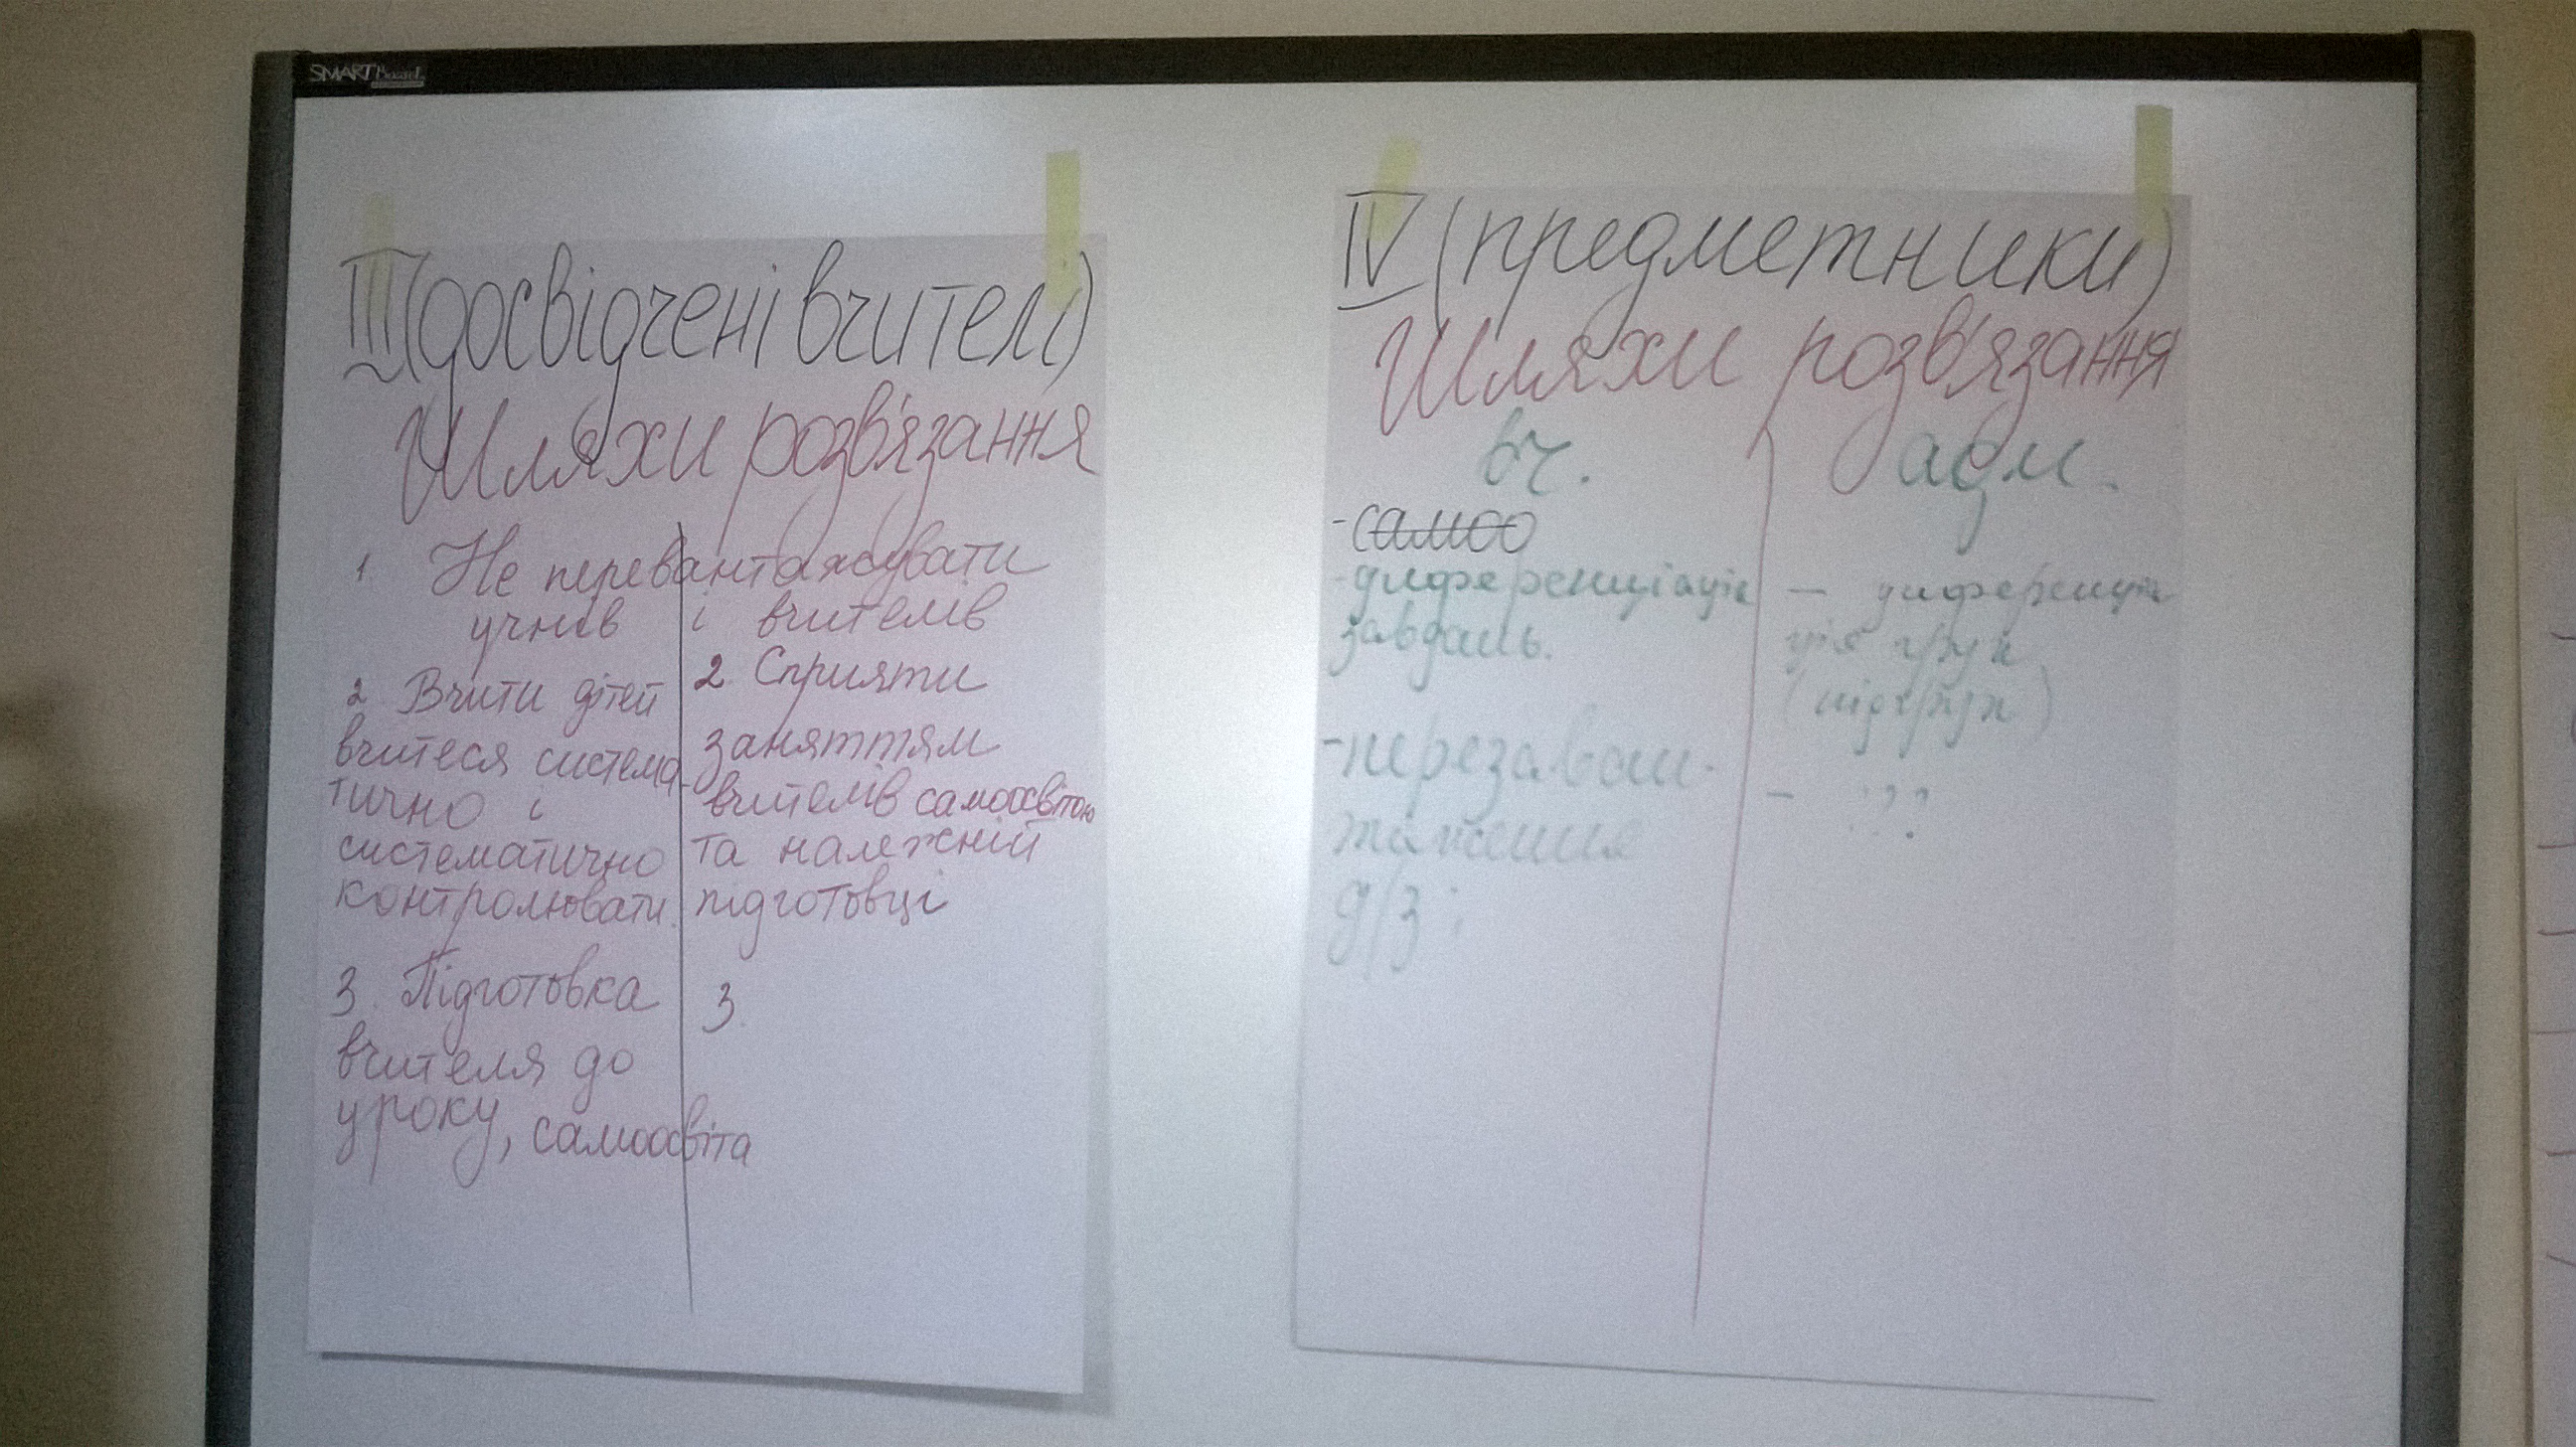 SMART Board
III (досвідчені вчителі)
Шляхи розв'язання
1. Не перевантажувати
учнів і вчителів
2. Вчити дітей
вчитеся система-
тично і
систематично
контролювати.
3. Підготовка
вчителя до
уроку, самоосвіта
2. Сприяти
заняттям
вчителів самоосвітою
та належній
підготовці
3.
IV (предметники)
Шляхи розв'язання
вч.
- самоо
- диференціація
завдань.
- перезаван-
таження
д/з;
адм.
- диференціа
ція груп
(підгруп)
- ???